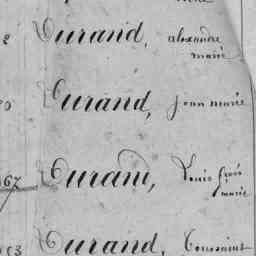 Durand, alexandre
marie
Durand, jean marie
67 Durand, Louis frçois
marie
Durand, Toussaint